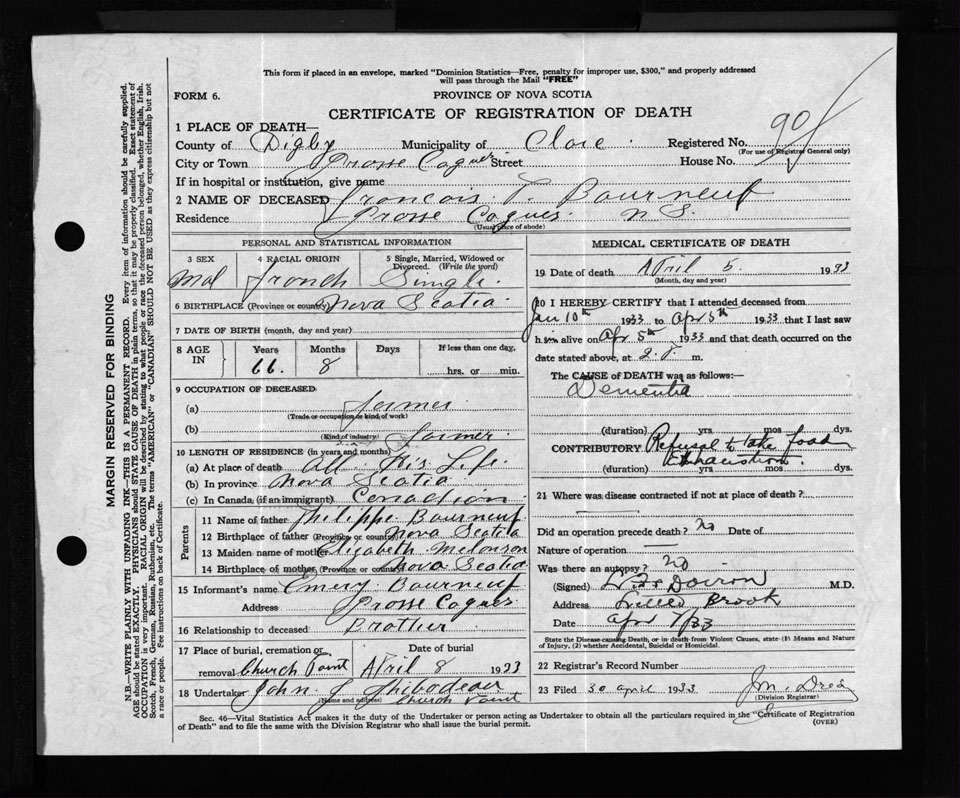 This form if placed in an envelope, marked "Dominion Statistics—Free, penalty for improper use, $300," and properly addressed
will pass through the Mail "FREE"
FORM 6.
PROVINCE OF NOVA SCOTIA
CERTIFICATE OF REGISTRATION OF DEATH
1 PLACE OF DEATH—
County of Digby Municipality of Clare Registered No. 90
(For use of Registrar General only)
City or Town Grosse Coques Street House No.
If in hospital or institution, give name
2 NAME OF DECEASED Francois Bourneuf
Residence Grosse Coques N S.
(Usual place of abode)
PERSONAL AND STATISTICAL INFORMATION
3 SEX
Mal
4 RACIAL ORIGIN
French
5 Single, Married, Widowed or Divorced. (Write the word)
Single
6 BIRTHPLACE (Province or country) Nova Scotia
7 DATE OF BIRTH (month, day and year)
8 AGE IN Years Months Days If less than one day,
66. 8 hrs. or min.
9 OCCUPATION OF DECEASED
(a) Farmer
(Trade or occupation or kind of work)
(b) Farmer
(Kind of industry)
10 LENGTH OF RESIDENCE (in years and months)
(a) At place of death All His Life
(b) In province Nova Scotia
(c) In Canada (if an immigrant) Canadian
Parents
11 Name of father Philippe Bourneuf
12 Birthplace of father (Province or country) Nova Scotia
13 Maiden name of mother Elizabeth Melonson
14 Birthplace of mother (Province or country) Nova Scotia
15 Informant's name Emery Bourneuf
Address Grosse Coques
16 Relationship to deceased Brother
17 Place of burial, cremation or Date of burial
removal Church Point April 8 1933
18 Undertaker John Thibodeau
(Name and address) Church Point
MEDICAL CERTIFICATE OF DEATH
19 Date of death April 5 1933
(Month, day and year)
20 I HEREBY CERTIFY that I attended deceased from
Jan 10th 1933 to Apr 5th 1933 that I last saw
him alive on Apr 5th 1933 and that death occurred on the
date stated above, at 2 P. m.
The CAUSE OF DEATH was as follows:—
Dementia
(duration) yrs mos dys.
CONTRIBUTORY Refusal to take food
Exhaustion
(duration) yrs. mos. dys.
21 Where was disease contracted if not at place of death?
Did an operation precede death? No Date of
Nature of operation —
Was there an autopsy? No
(Signed) Doiron M.D.
Address Brook
Date Apr 7/33
State the Disease causing Death, or in death from Violent Causes, state (1) Means and Nature
of Injury, (2) whether Accidental, Suicidal or Homicidal.
22 Registrar's Record Number
23 Filed 30 April 1933
(Division Registrar)
Sec. 46—Vital Statistics Act makes it the duty of the Undertaker or person acting as Undertaker to obtain all the particulars required in the "Certificate of Registration
of Death" and to file the same with the Division Registrar who shall issue the burial permit.
(OVER)
MARGIN RESERVED FOR BINDING
N.B.—WRITE PLAINLY WITH UNFADING INK—THIS IS A PERMANENT RECORD. Every item of information should be carefully supplied.
AGE should be stated EXACTLY. PHYSICIANS should STATE CAUSE OF DEATH in plain terms, so that it may be properly classified. Exact statement of
OCCUPATION is very important. RACIAL ORIGIN will be described by stating to what people or race the deceased person belonged, whether English, Irish,
Scotch, French, German, Russian, Ruthenian, etc. The terms "AMERICAN" or "CANADIAN" SHOULD NOT BE USED as they express citizenship but not
a race or people. See instructions on back of Certificate.